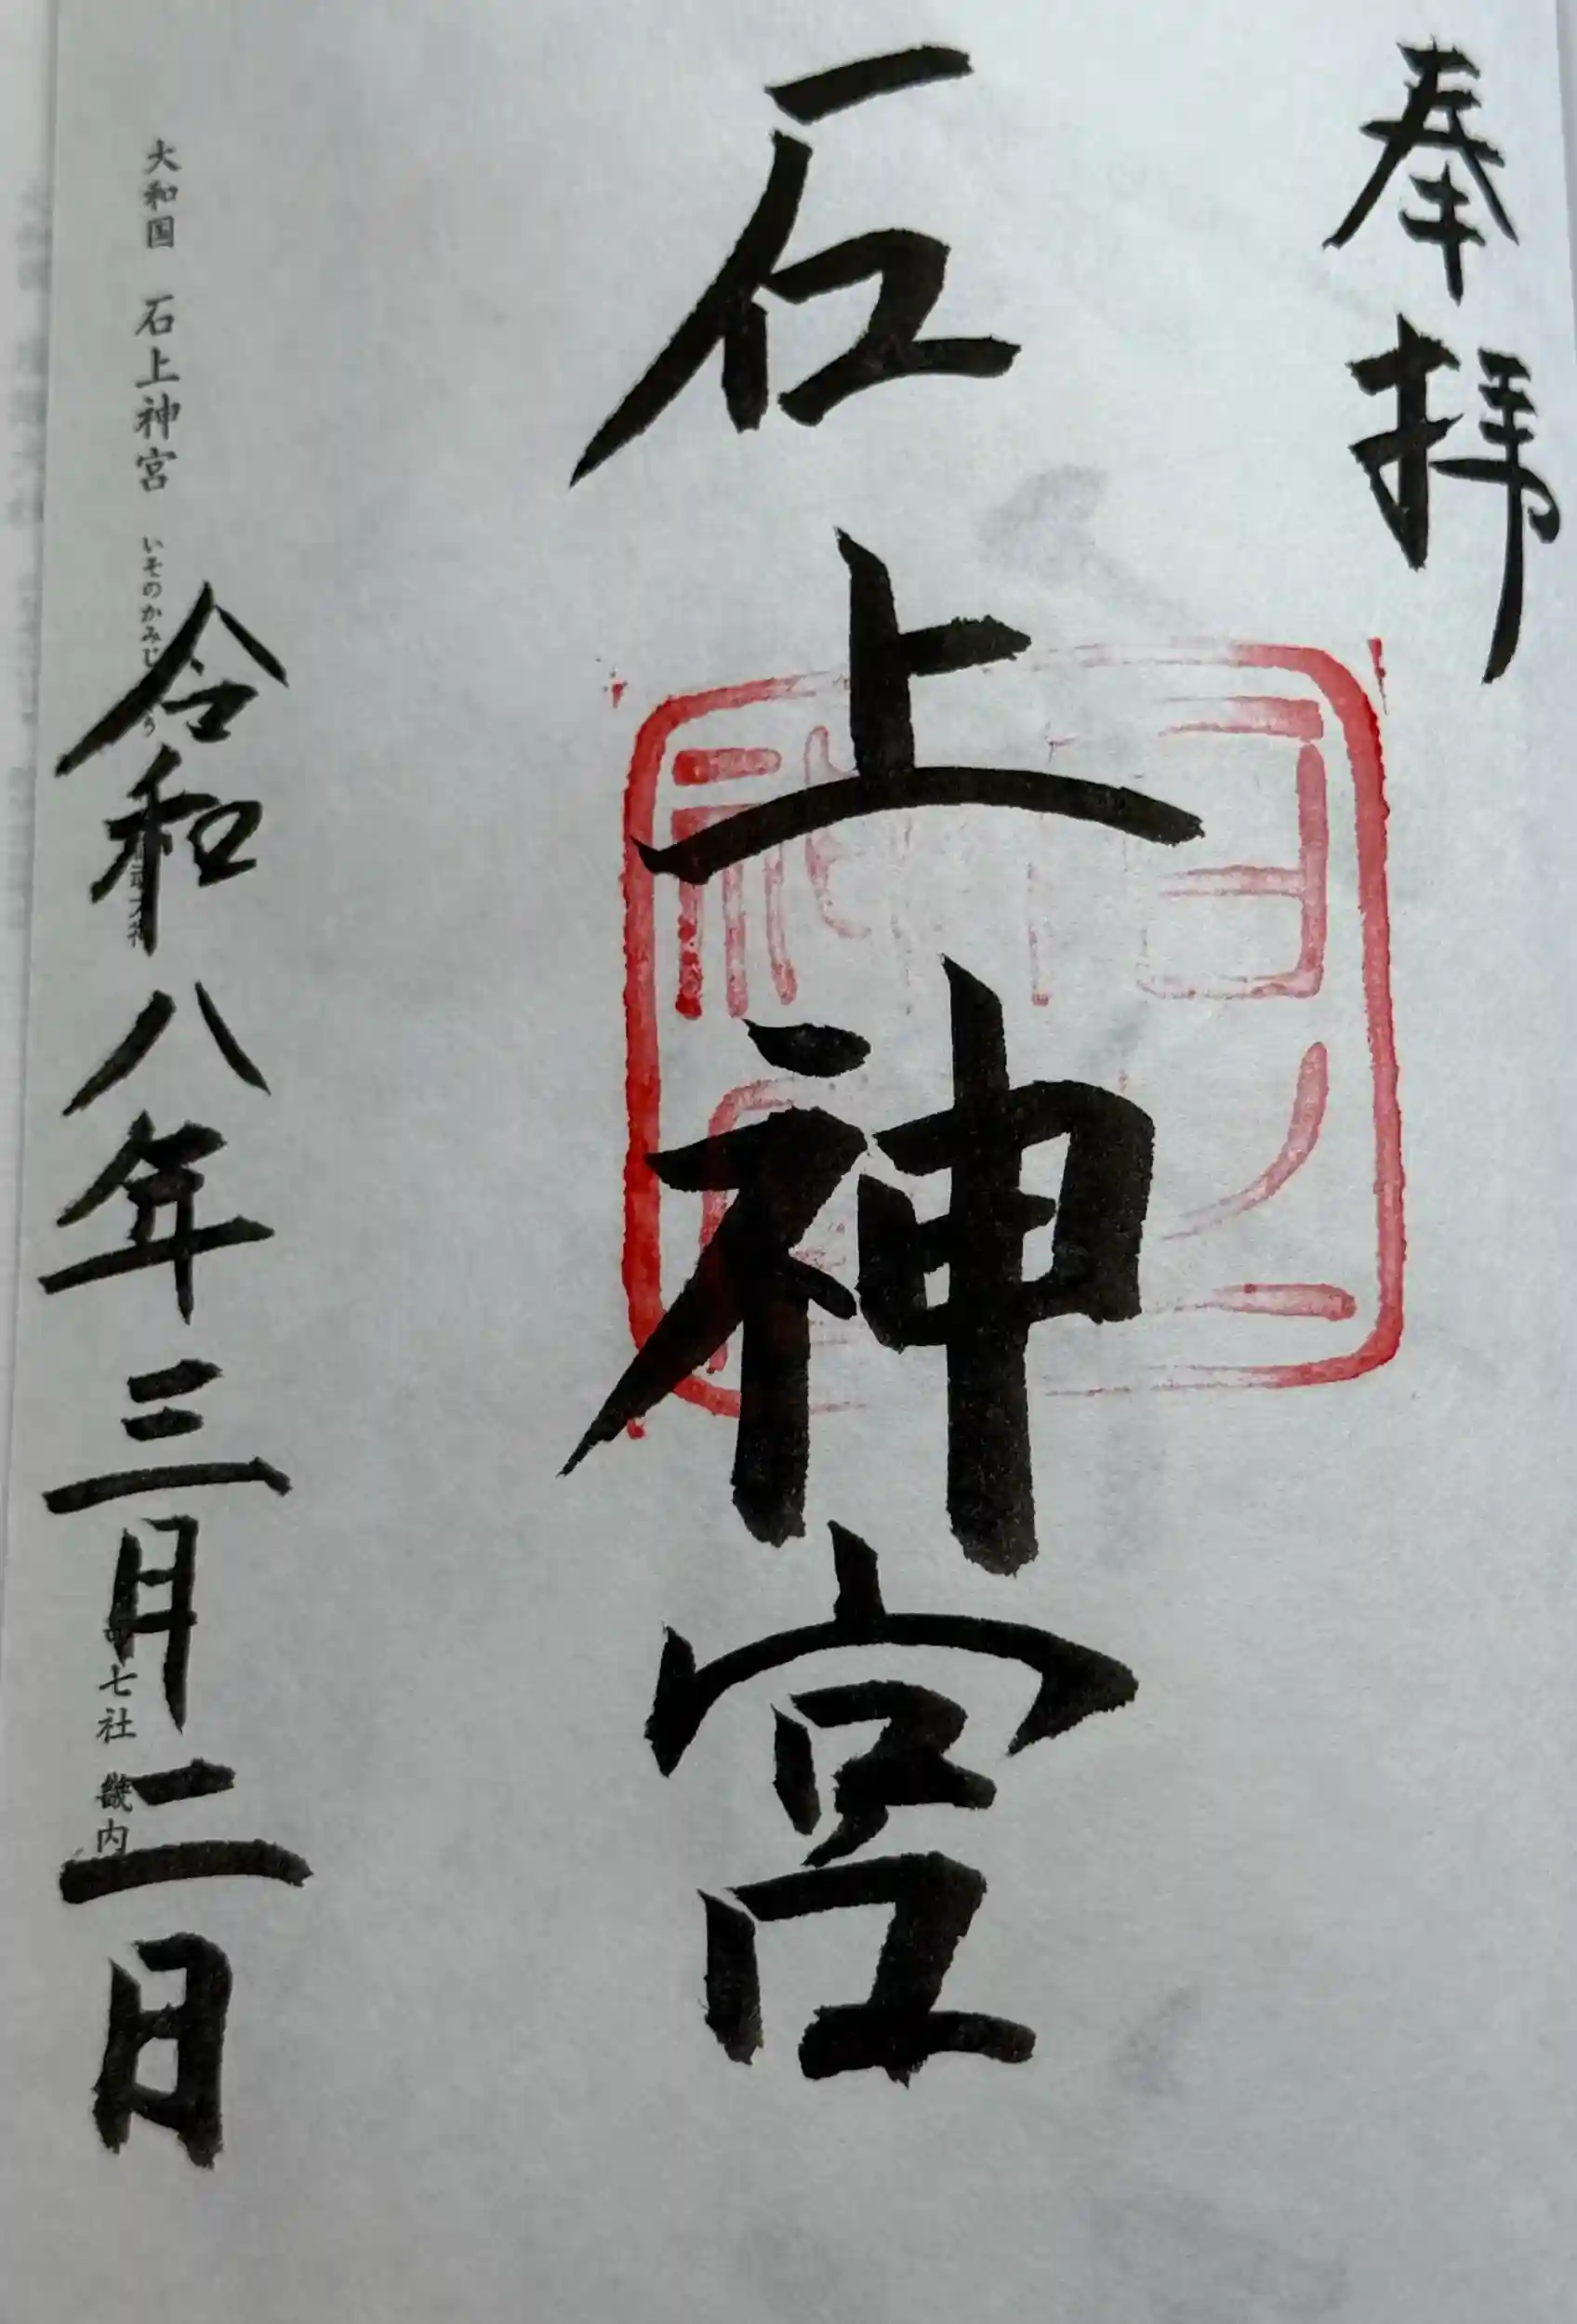 奉拝
石上神宮
令和八年三月二日
大和国 石上神宮 いそのかみじ
七社 畿内